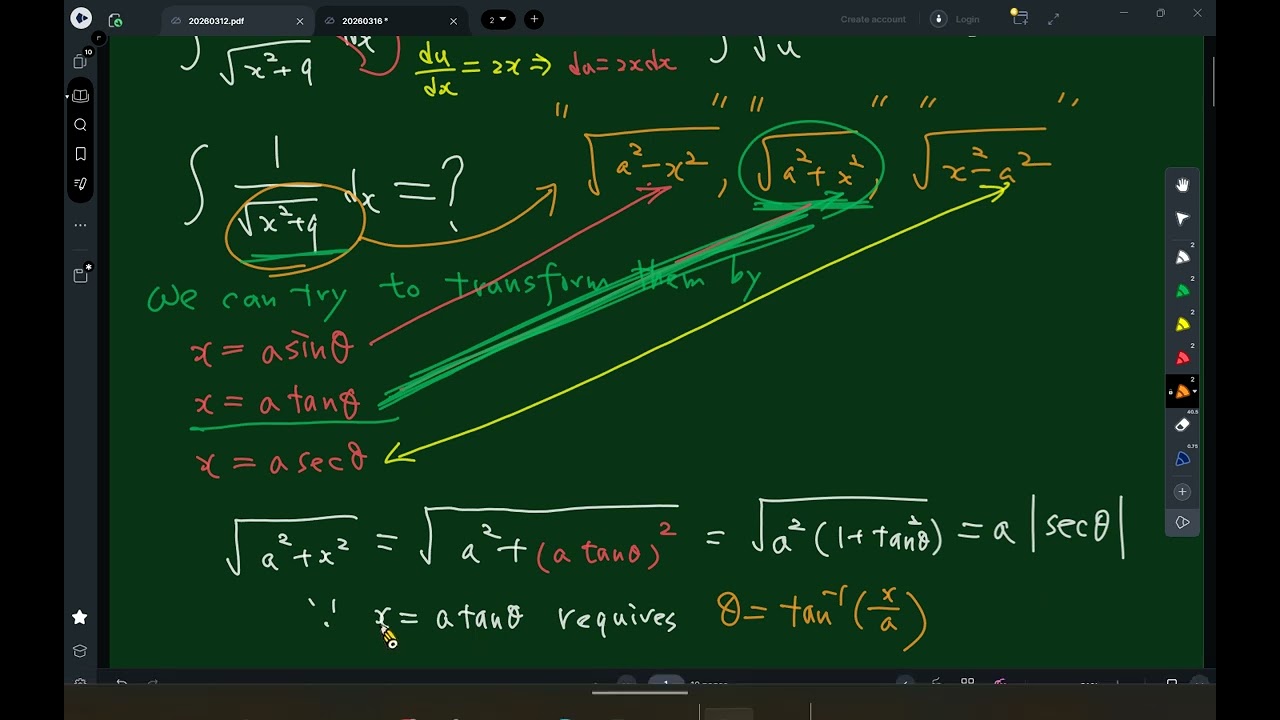 20260312.pdf × 20260316 * × 2 + Create account Login
∫ 1/√(x²+9) dx du/dx = 2x ⇒ du = 2xdx ∫ √u
" " " " " "
∫ 1/√(x²+9) dx = ? √(a²-x²), √(a²+x²), √(x²-a²)
We can try to transform them by
x = a sinθ
x = a tanθ
x = a secθ
√(a²+x²) = √(a²+(a tanθ)²) = √(a²(1+tan²θ)) = a|secθ|
∵ x = a tanθ requires θ = tan⁻¹(x/a)